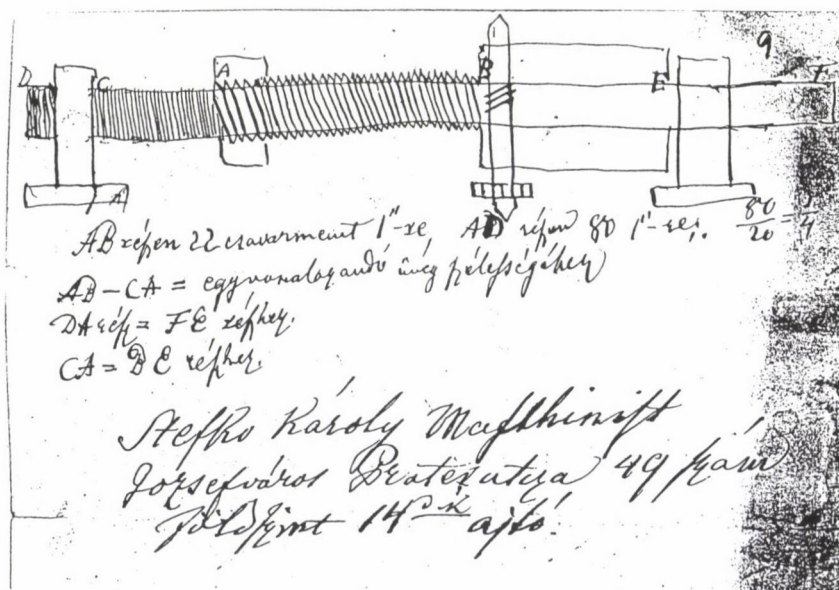 9
D C A B E F
A
AB részen 22 csavarmenet 1"-re, AD részen 80 1"-re; 80/20 = 1/4
AB – CA = egy vonalozandó üveg szélességéhez
DA rész = FE részhez.
CA = BE részhez.
Stefko Károly Maschinist
Jozsefváros Prater utcza 49 szám
földszint 14 ajtó.